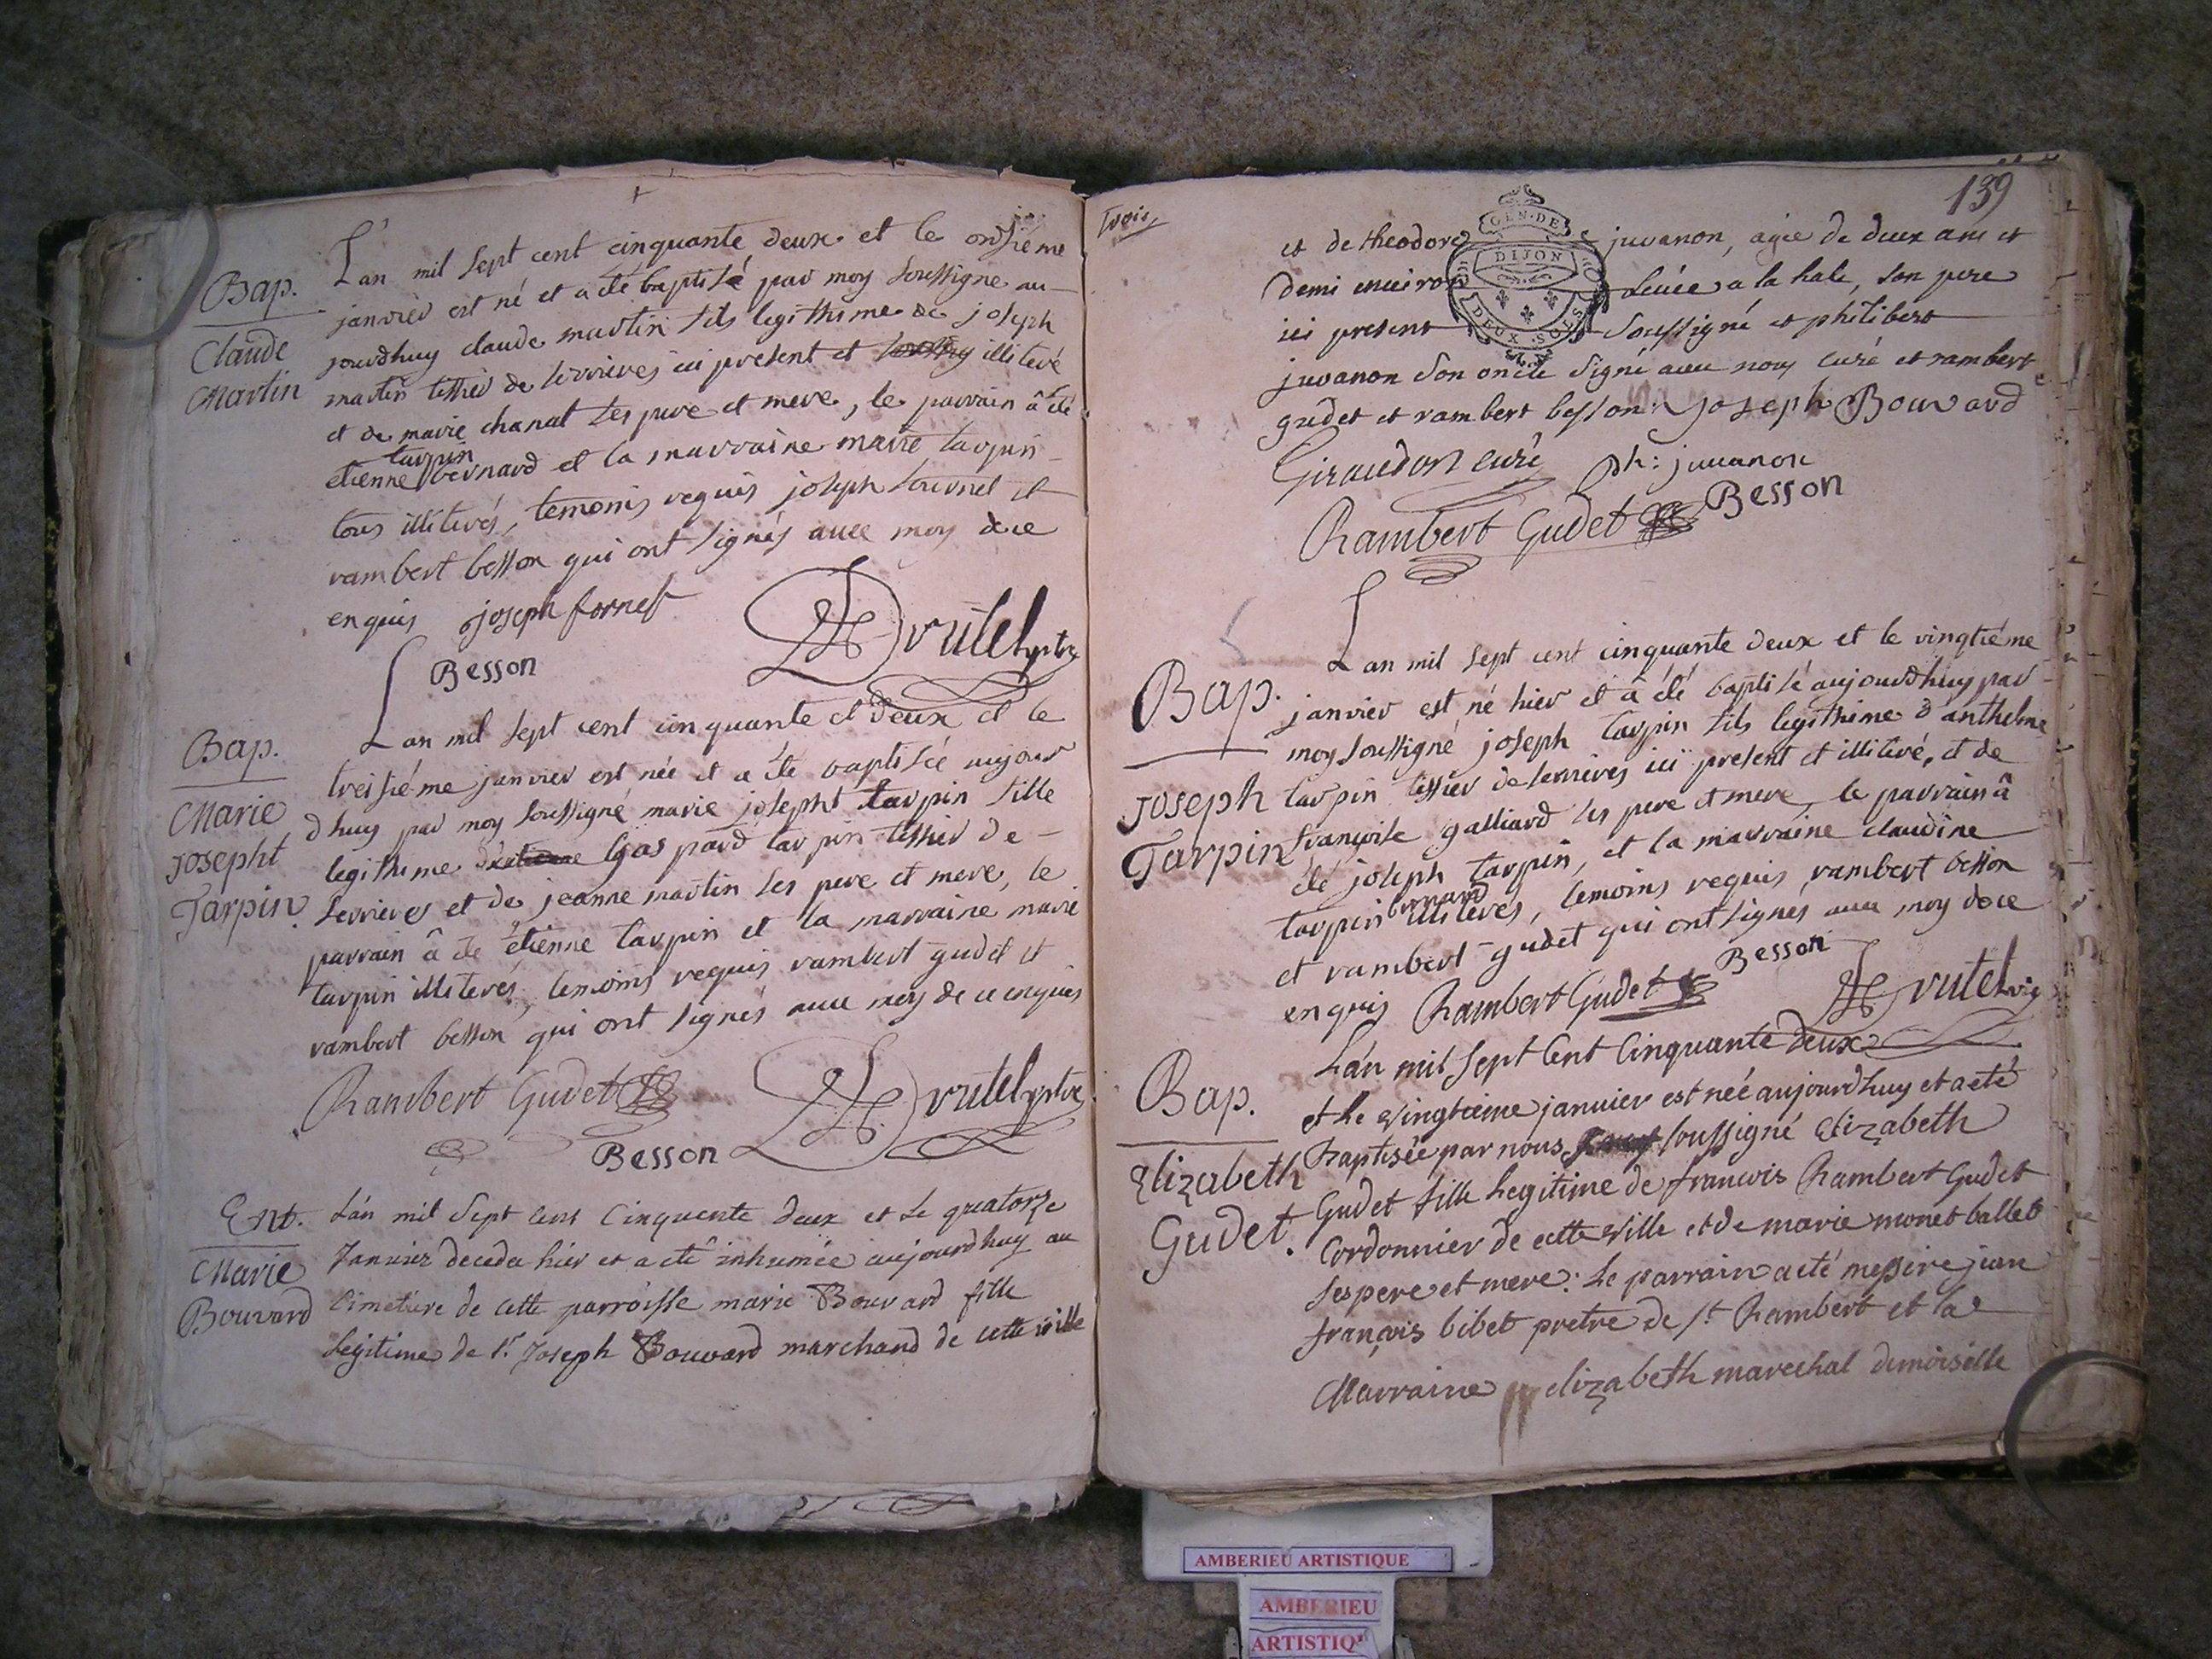 L'an mil sept cent cinquante deux et le onsiéme
Bap.
janvier est né et a été baptisé par moy soussigné au-
Claude
Martin
jourdhuy claude martin fils legithime de joseph
martin tissier de serrieres ici present et illiteré
et de marie chanal ses pere et mere, le parrain â été
tarpin
etienne bernard et la marraine marie tarpin
tous illiterés, temoins requis joseph fournet et
rambert besson qui ont signés avec moy de ce
enquis joseph fornet
Besson
Drutel ptre
Bap.
Marie
Josepht
Tarpin.
L'an mil sept cent cinquante et deux et le
treisiéme janvier est née et a été baptisée aujour
dhuy par moy soussigné marie josepht tarpin fille
legithime d'etienne gaspard tarpin tissier de
serrieres et de jeanne martin ses pere et mere, le
parrain â été étienne tarpin et la marraine marie
tarpin illiterés, temoins requis rambert gudet et
rambert besson qui ont signés avec moy de ce enquis
Rambert Gudet
Drutel ptre
Besson
Ent.
Marie
Bouvard
L'án mil sept cent cinquente deux et le quatorze
Janvier deceda hier et a eté inhumée aujourdhuy au
cimetiere de cette parroisse marie Bouvard fille
legitime de sr. Joseph Bouvard marchand de cette ville
trois
139
GEN·DE
DIJON
DEUX·SOLS
et de theodore juvanon, agée de deux ans et
demi environ levée a la hale, son pere
ici present soussigné et philibert
juvanon son oncle signé avec nous curé et rambert
gudet et rambert besson: joseph Bouvard
Giraudon curé ph: juvanon
Rambert Gudet Besson
Bap.
Joseph
Tarpin
L'an mil sept cent cinquante deux et le vingtiéme
janvier est né hier et â été baptisé aujourdhuy par
moy soussigné joseph tarpin fils legithime d'anthelme
tarpin tissier de serrieres ici present et illiteré, et de
françoise galliard ses pere et mere, le parrain â
été joseph tarpin, et la marraine claudine
bernard
tarpin illiterés, temoins requis rambert besson
et rambert gudet qui ont signés avec moy de ce
enquis Rambert Gudet Besson
Drutel vic
Bap.
Elizabeth
Gudet.
L'án mil sept cent cinquante deux
et le vingtieme janvier est née aujourdhuy et a eté
Baptisée par nous soussigné Elizabeth
Gudet fille legitime de francois Rambert Gudet
Cordonnier de cette ville et de marie monet ballet
ses pere et mere: le parrain a eté messire jean
françois bibet pretre de st Rambert et la
Marraine elizabeth marechal demoiselle
AMBERIEU ARTISTIQUE
AMBERIEU
ARTISTIQ